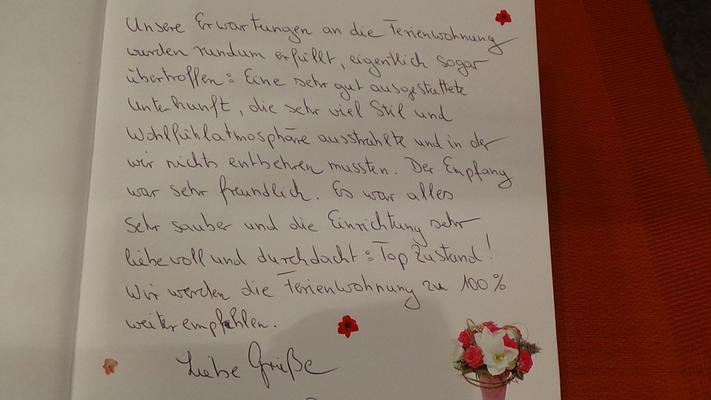 Unsere Erwartungen an die Ferienwohnung
wurden rundum erfüllt, eigentlich sogar
übertroffen: Eine sehr gut ausgestattete
Unterkunft, die sehr viel Stil und
Wohlfühlatmosphäre ausstrahlte und in der
wir nichts entbehren mussten. Der Empfang
war sehr freundlich. Es war alles
sehr sauber und die Einrichtung sehr
liebevoll und durchdacht: Top Zustand!
Wir werden die Ferienwohnung zu 100%
weiterempfehlen.
Liebe Grüße